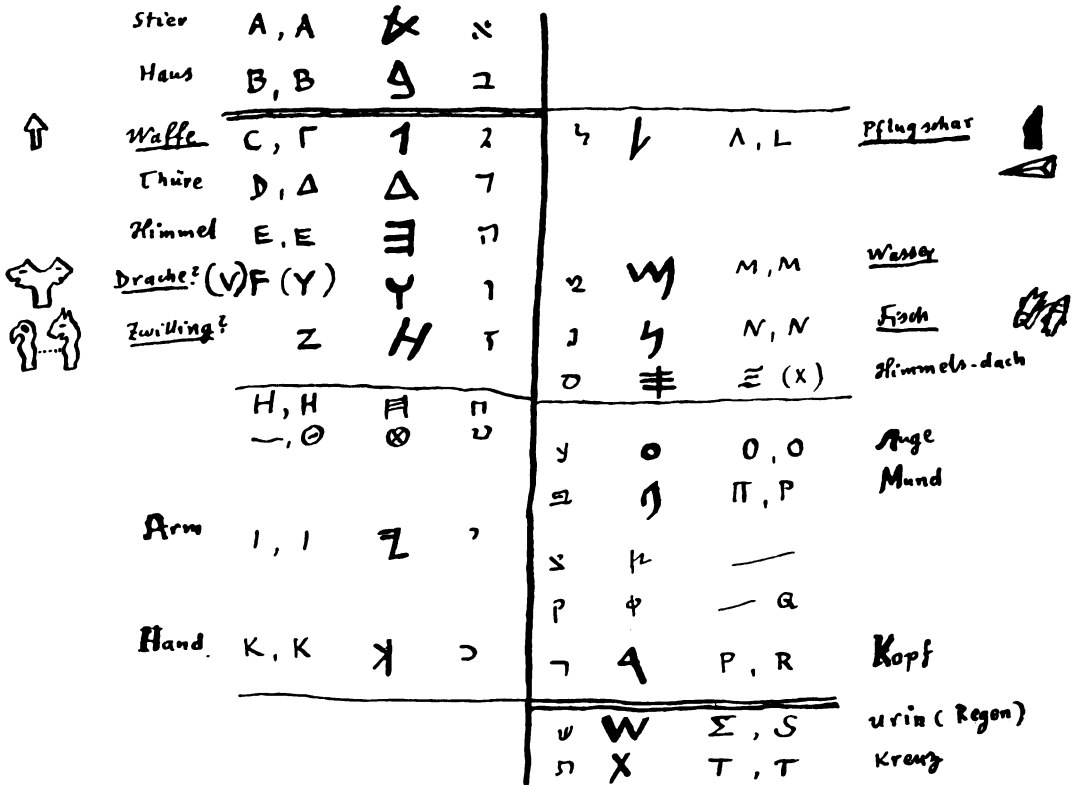 Stier A, A 𐤀 א
Haus B, B 𐤁 ב
Waffe C, Γ 𐤂 ג
Thüre D, Δ 𐤃 ד
Himmel E, E 𐤄 ה
Drache? (V)F (Y) 𐤅 ו
Zwilling? Z 𐤆 ז
H, H 𐤇 ח
—, Θ 𐤈 ט
Arm I, I 𐤉 י
Hand. K, K 𐤊 כ
ל 𐤋 Λ, L Pflugschar
מ 𐤌 M, M Wasser
נ 𐤍 N, N Fisch
ס 𐤎 Ξ (X) Himmels-dach
ע 𐤏 O, O Auge
פ 𐤐 Π, P Mund
צ 𐤑 —
ק 𐤒 — Q
ר 𐤓 P, R Kopf
ש 𐤔 Σ, S urin (Regen)
ת 𐤕 T, T Kreuz